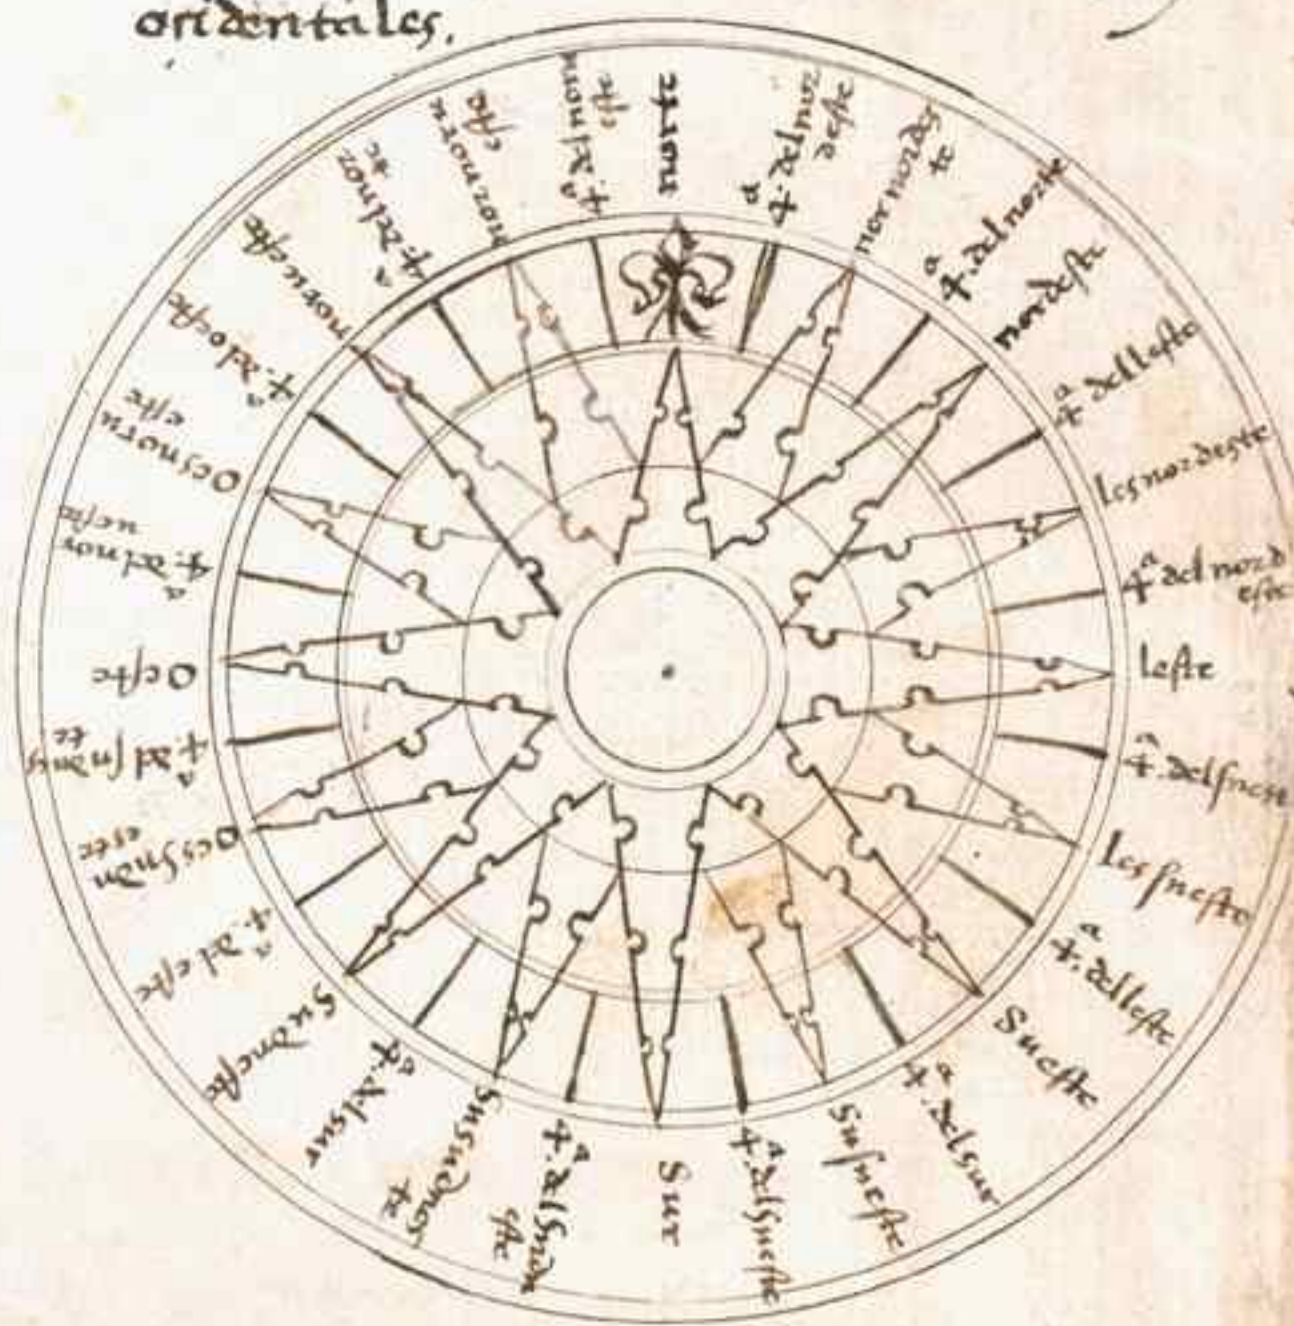 oridentales.
norte
4ª. del nor
deste
nornordes
te
4ª. del norte
nordeste
4ª del leste
lesnordeste
4ª del nord
este
leste
4ª. del suest
lessueste
4ª. del leste
Sueste
4ª. del sur
Susueste
4ª. del sueste
Sur
4ª. del sudu
este
Susudues
te
4ª. del sur
Sudueste
4ª. del oeste
Oessudu
este
4ª. del sudues
te
Oeste
4ª. del nor
ueste
Oesnoru
este
4ª. del oeste
norueste
4ª. del nor
te
nornoru
este
4ª. del noru
este